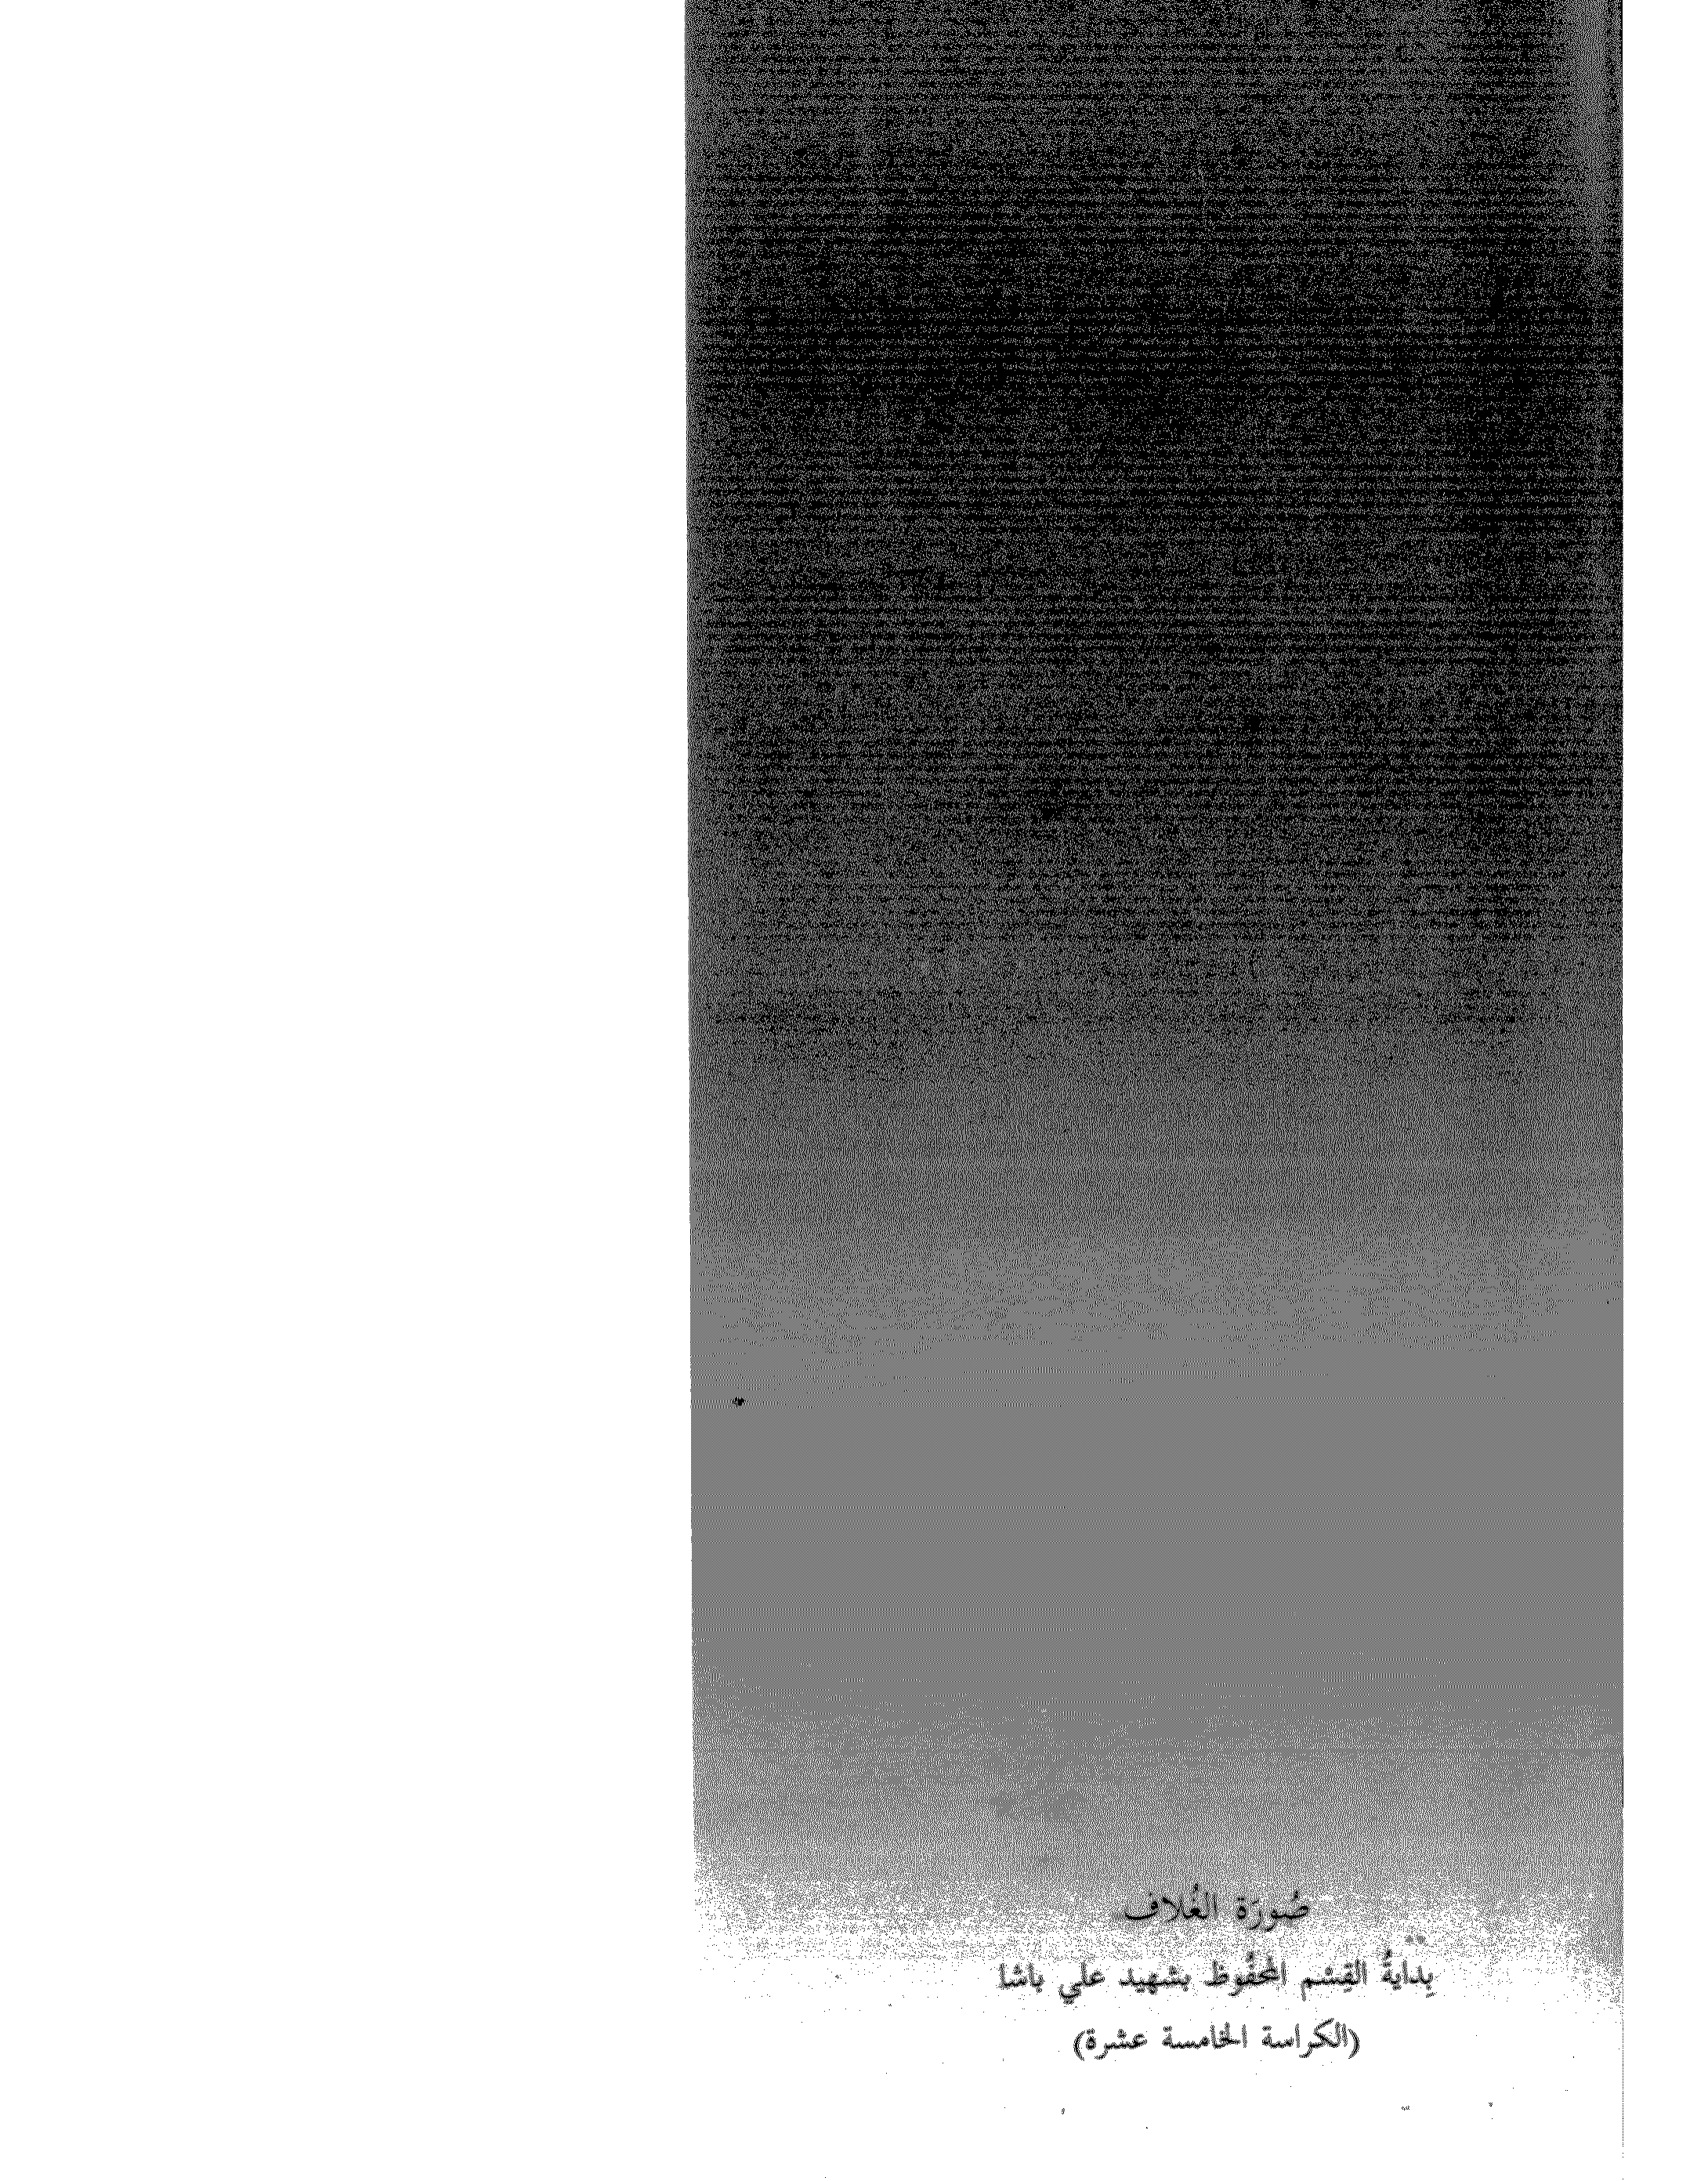 صُورَة الغُلاف
بِدايةُ القِسْم المحفُوظ بشهيد علي باشا
(الكراسة الخامسة عشرة)